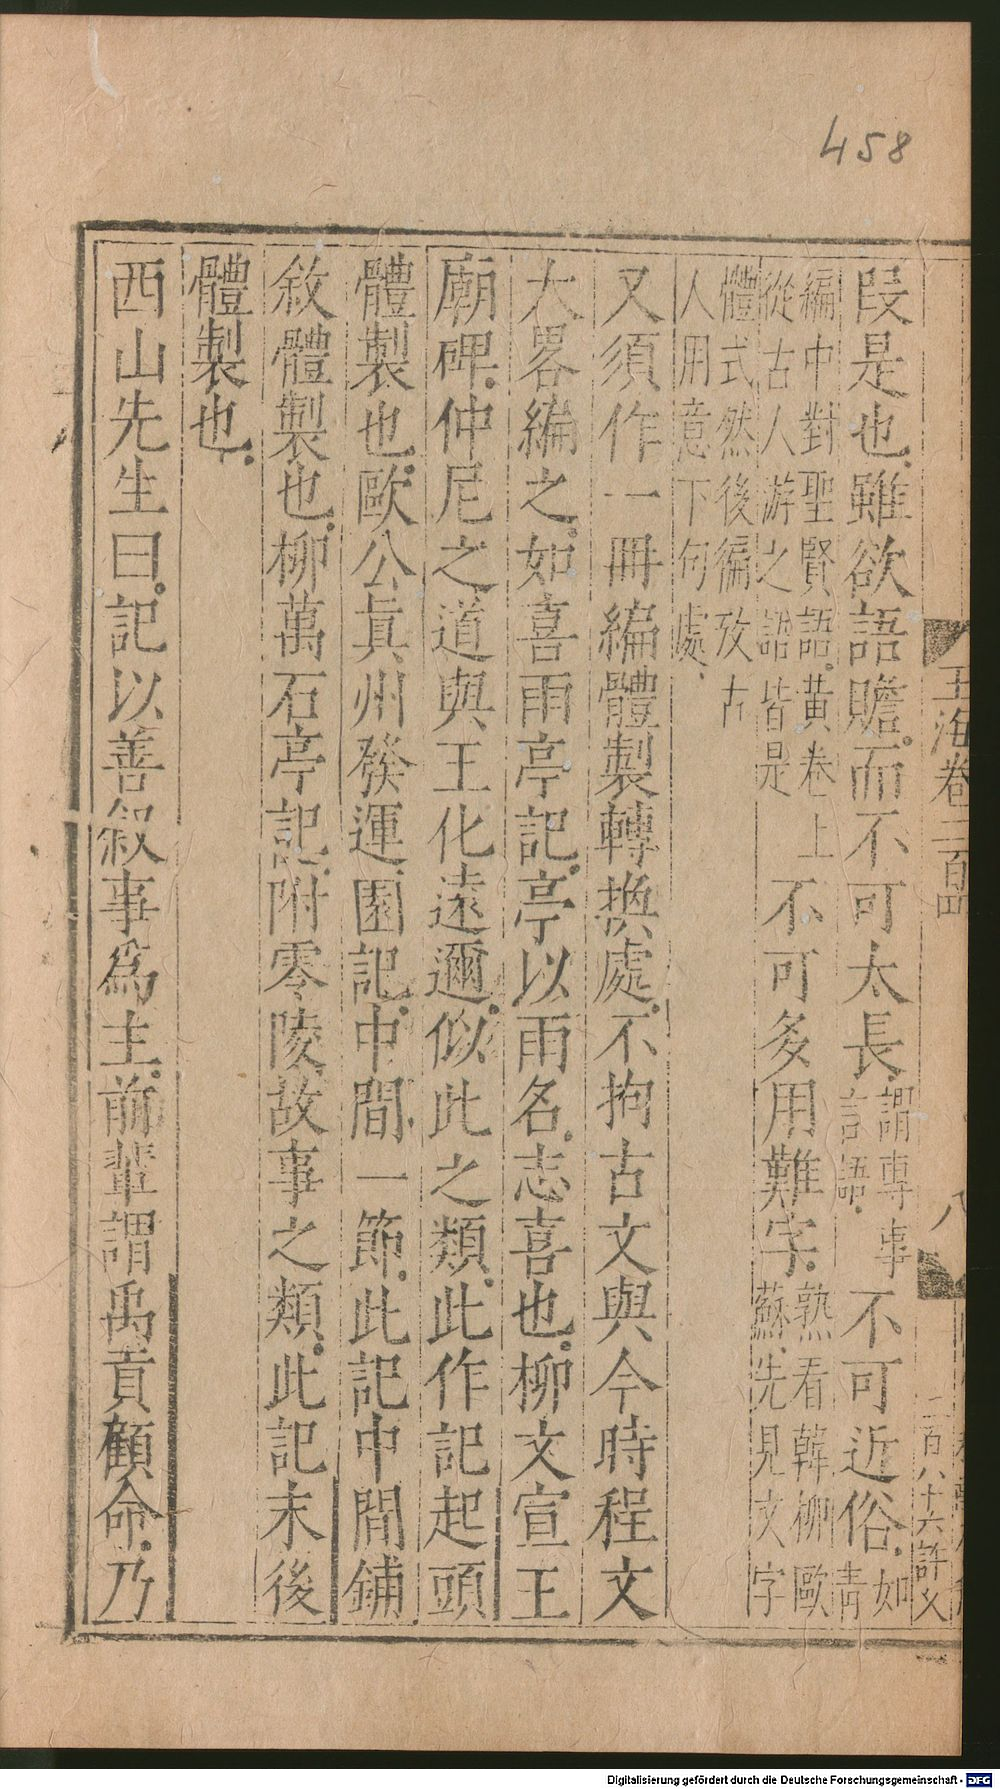 458
玉海卷二百四
八
二百八十六許乂
段是也雖欲語贍而不可太長謂專事言語不可近俗如靑
編中對聖賢語黃卷上從古人游之語皆是不可多用難字熟看韓柳歐蘇先見文字
體式然後徧攷古人用意下句處
又須作一冊編體製轉換處不拘古文與今時程文
大畧編之如喜雨亭記亭以雨名志喜也柳文宣王
廟碑仲尼之道與王化遠邇似此之類此作記起頭
體製也歐公眞州發運園記中間一節此記中間鋪
敘體製也柳萬石亭記附零陵故事之類此記末後
體製也
西山先生曰記以善叙事爲主前輩謂禹貢顧命乃
Digitalisierung gefördert durch die Deutsche Forschungsgemeinschaft - DFG